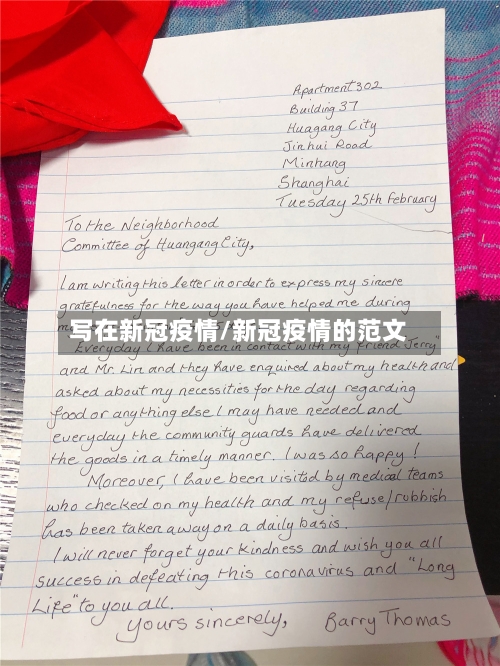 Apartment 302
Building 37
Huagang City
Jinhui Road
Minhang
Shanghai
Tuesday 25th February
To the Neighborhood
Committee of Huangang City,
I am writing this letter in order to express my sincere
gratefulness for the way you have helped me during
写在新冠疫情/新冠疫情的范文
Everyday I have been in contact with my friend "Jerry"
and Mr. Lin and they have enquired about my health and
asked about my necessities for the day regarding
food or anything else I may have needed and
everyday the community guards have delivered
the goods in a timely manner. I was so happy!
Moreover, I have been visited by medical teams
who checked on my health and my refuse/rubbish
has been taken away on a daily basis.
I will never forget your kindness and wish you all
success in defeating this coronavirus and "Long
Life" to you all.
Yours sincerely, Barry Thomas